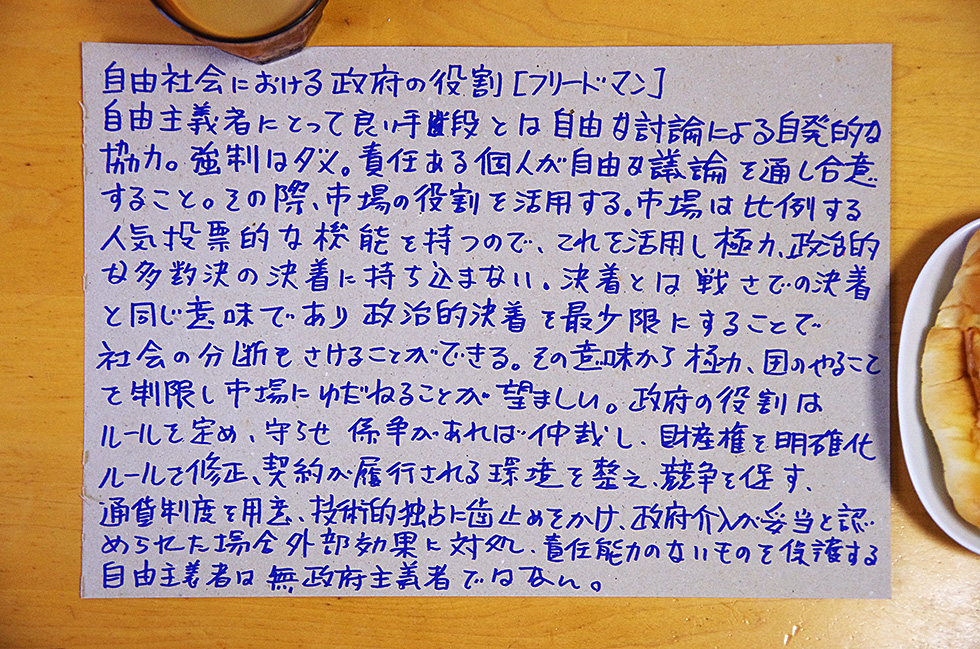 自由社会における政府の役割[フリードマン]
自由主義者にとって良い手段とは自由な討論による自発的な
協力。強制はダメ。責任ある個人が自由な議論を通し合意
すること。その際、市場の役割を活用する。市場は比例する
人気投票的な機能を持つので、これを活用し極力、政治的
な多数決の決着に持ち込まない。決着とは戦さでの決着
と同じ意味であり政治的決着を最少限にすることで
社会の分断をさけることができる。その意味から極力、国のやること
を制限し市場にゆだねることが望ましい。政府の役割は
ルールを定め、守らせ係争があれば仲裁し、財産権を明確化
ルールを修正、契約が履行される環境を整え、競争を促す、
通貨制度を用意、技術的独占に歯止めをかけ、政府介入が妥当と認
められた場合外部効果に対処し、責任能力のないものを保護する
自由主義者は無政府主義者ではない。